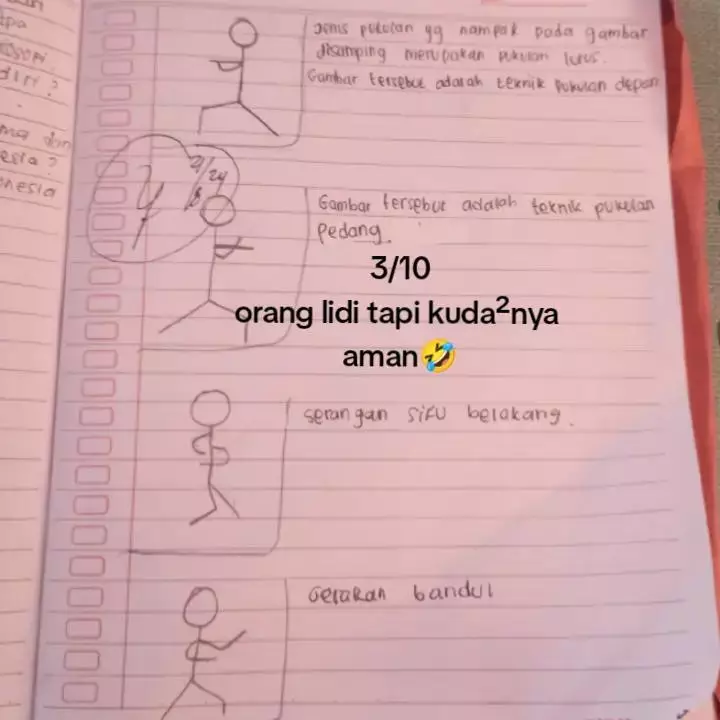 Jenis pukulan yg nampak pada gambar
disamping merupakan pukulan lurus.
Gambar tersebut adalah teknik pukulan depan
21/24
8
Gambar tersebut adalah teknik pukulan
Pedang.
3/10
orang lidi tapi kuda²nya
aman🤣
serangan siku belakang.
Gerakan bandul
diri?
esia?
nesia